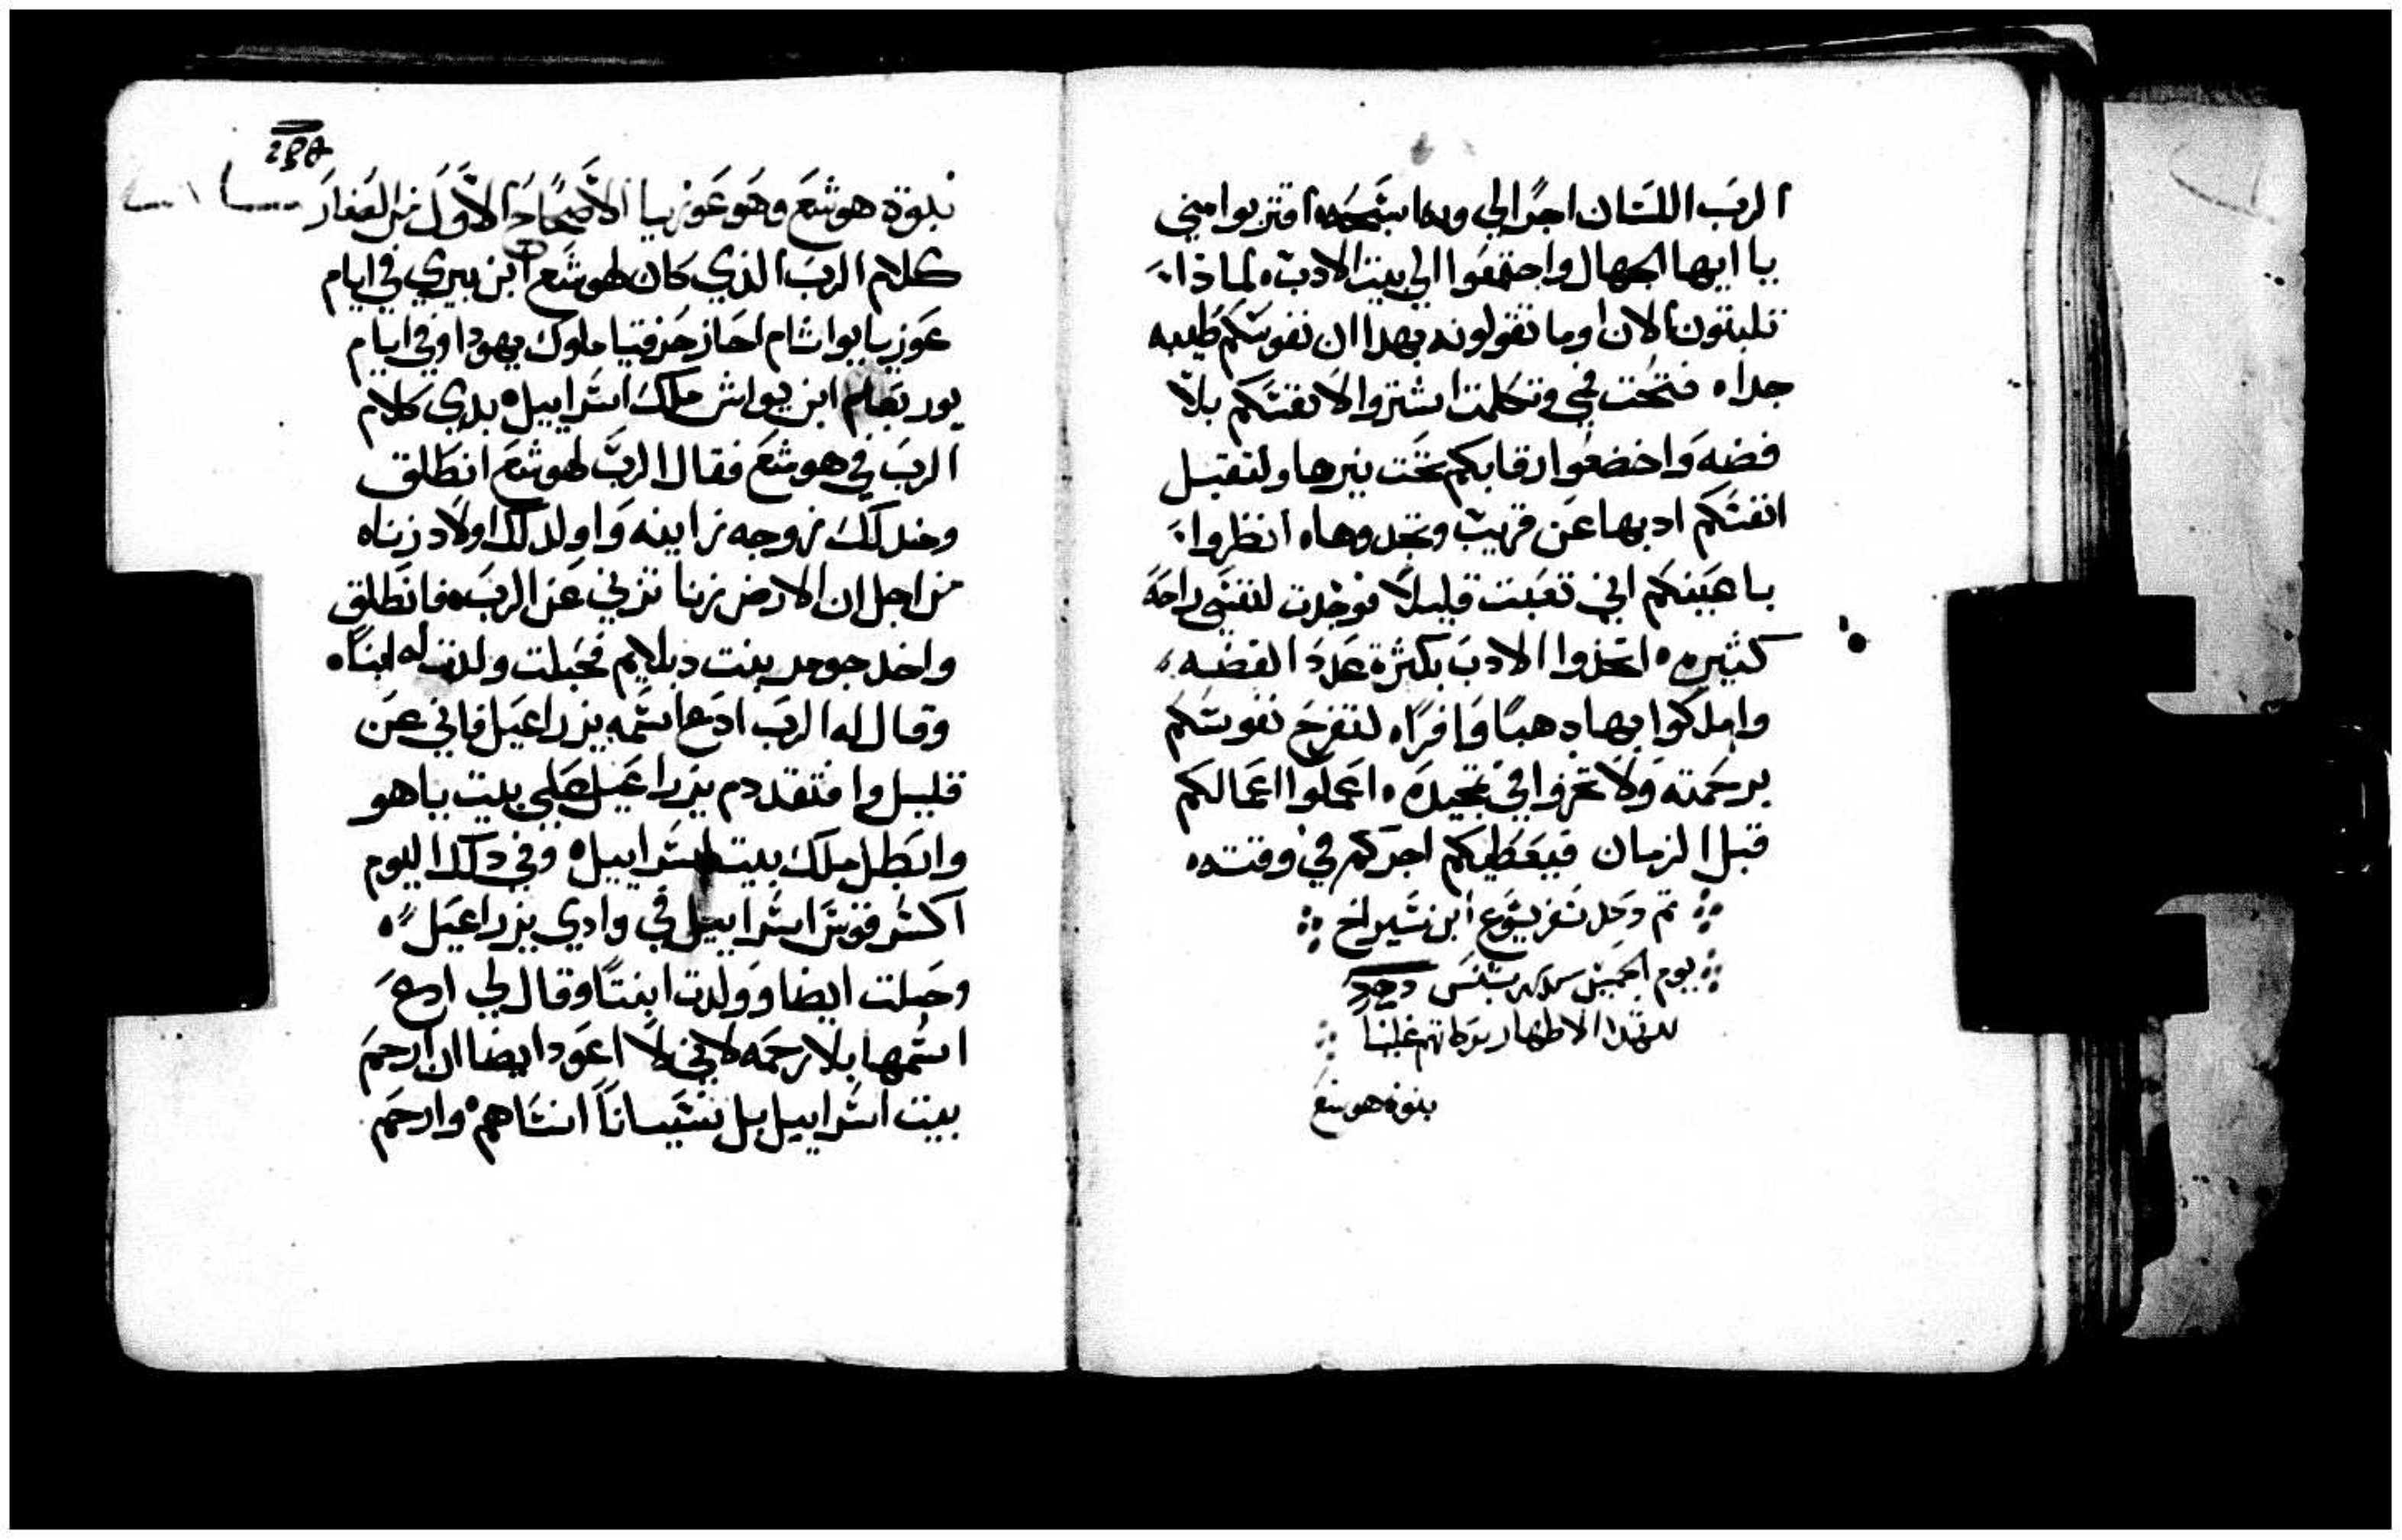 الرب اللسان اجرًا لي وبها بتمجده اقتربوا مني
يا ايها الجهال واجتمعوا الي بيت الادب، لماذا
تلبثون الان وما تقولونه بهدا ان نفوسكم طيبه
جدا، فتحت في وتكلمت اشتروا لانفسكم بلا
فضه واخضعوا رقابكم تحت نيرها ولتقبل
انفسكم ادبها عن قريب وتجدوها، انظروا
باعينكم اني تعبت قليلًا فوجدت لنفسي راحه
كثيره، اتخذوا الادب بكثرة عدد الفضه،
واملكوا بها دهبًا وافرًا، لتفرح نفوسكم
برحمته ولا تخزوا في تمجيده، اعملوا اعمالكم
قبل الزمان فيعطيكم اجركم في وقته،
تم وكمل سفر يشوع ابن شيراخ
يوم الخميس بشنس
الاطهار بركاتهم علينا
نبوة هوشع
نبوة هوشع وهو عوزيا الاصحاح الاول من الصغار
كلام الرب الذي كان لهوشع ابن بيري في ايام
عوزيا يواتام احاز حزقيا ملوك يهودا وفي ايام
يوربعام ابن يواش ملك اسراييل، بدي كلام
الرب في هوشع فقال الرب لهوشع انطلق
وخد لك زوجه زانيه واولد لك اولاد زناه
من اجل ان الارض زنا تزني عن الرب، فانطلق
واخد جومر بنت دبلايم فحبلت وولدت له ابنًا،
وقال له الرب ادع اسمه يزراعيل فاني عن
قليل وافتقد دم يزراعيل علي بيت ياهو
وابطل ملك بيت اسراييل، وفي دلك اليوم
اكسر قوس اسراييل في وادي يزراعيل،
وحبلت ايضا وولدت ابنتًا وقال لي ادع
اسمها بلا رحمه لاني لا اعود ايضا ان ارحم
بيت اسراييل بل نسيانًا انساهم، وارحم